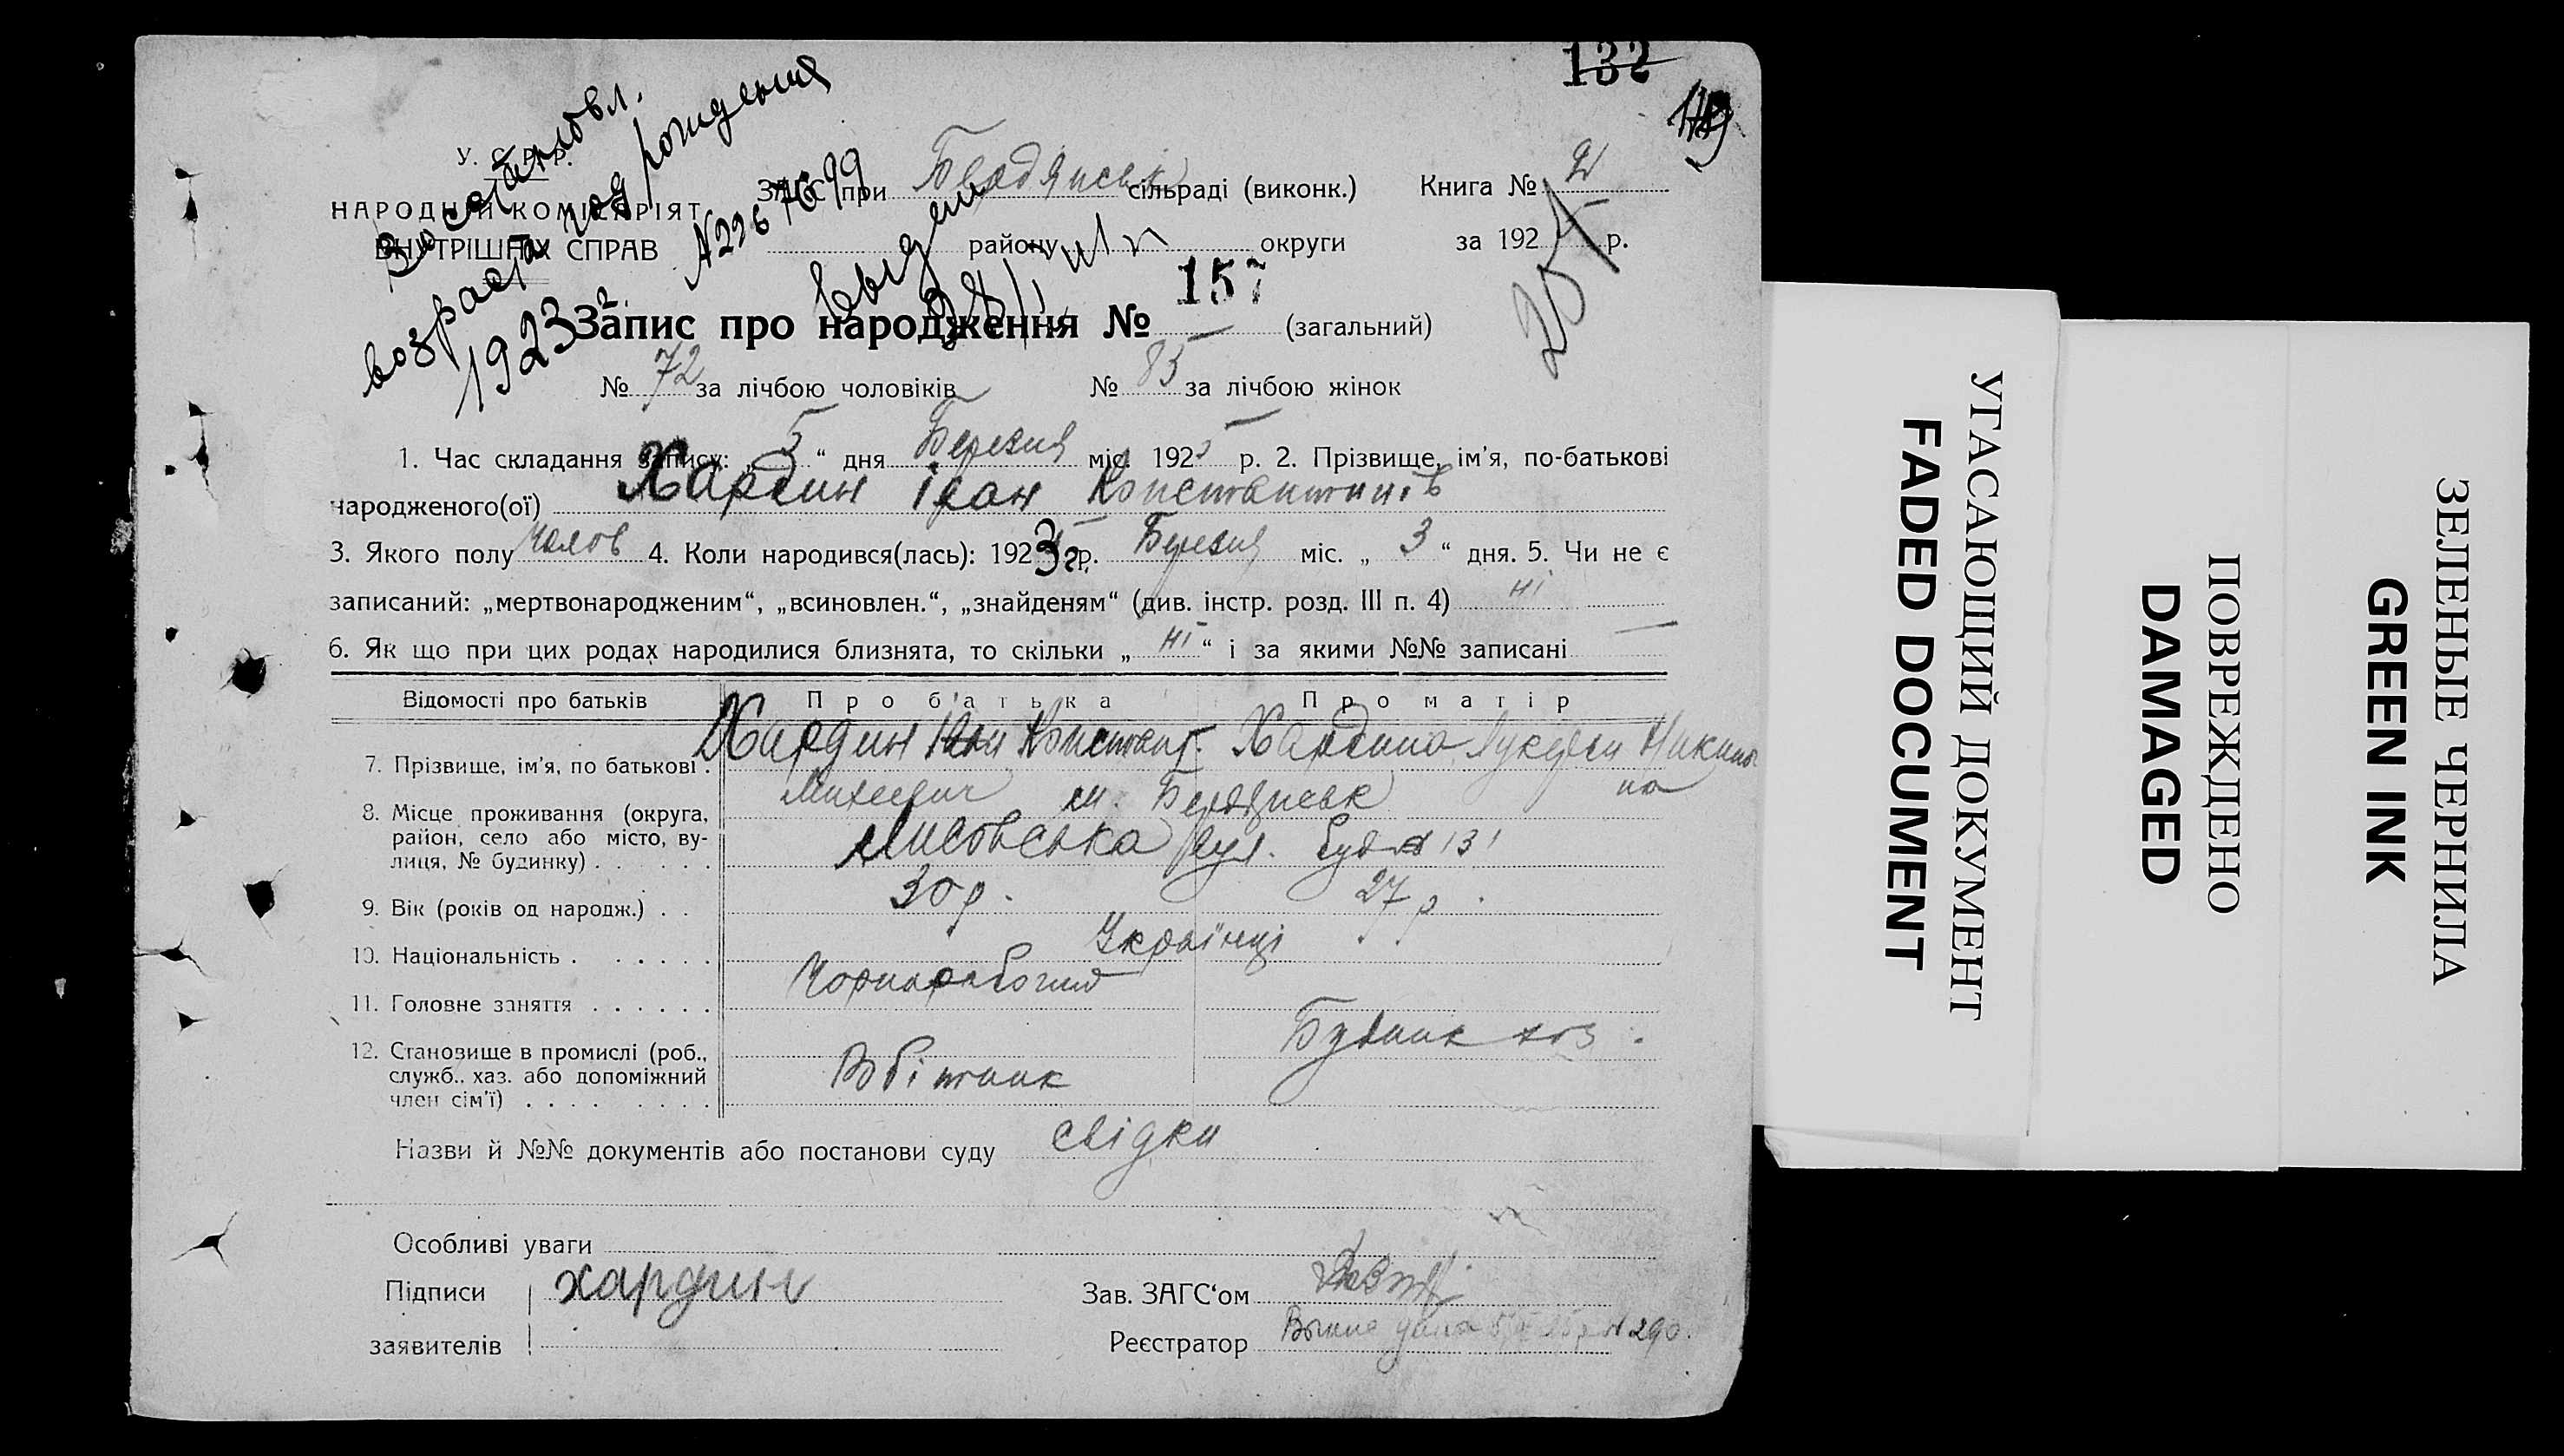 132
149
Восстановл.
возраста год рождения
1923 г.
У. С. Р. Р.
НАРОДНИЙ КОМІСАРІЯТ
ВНУТРІШНІХ СПРАВ
N226 76 99
ЗАГС при Бердянськ сільраді (виконк.) Книга № 2
району округи за 192 р.
Запис про народження № 157 (загальний)
№ 72 за лічбою чоловіків № 85 за лічбою жінок
1. Час складання запису: „ 5 “ дня Березня міс. 1925 р. 2. Прізвище, ім’я, по-батькові
народженого(ої) Хардин Іван Константинів
3. Якого полу чолов 4. Коли народився(лась): 1923 г. р. Березня міс. „ 3 “ дня. 5. Чи не є
записаний: „мертвонародженим“, „всиновлен.“, „знайденям“ (див. інстр. розд. III п. 4) ні
6. Як що при цих родах народилися близнята, то скільки „ ні “ і за якими №№ записані —
Відомості про батьків Про батька Про матір
Хардин Константин Хардина
7. Прізвище, ім’я, по батькові . Михеевич м. Бердянськ
8. Місце проживання (округа, район, село або місто, ву-
лиця, № будинку) . . . . . Лисовська вул. буд № 131
9. Вік (років од народж.) . . 30 р. 27 р.
10. Національність . . . . . . Українці
11. Головне заняття . . . . . . Чорноробочий
12. Становище в промислі (роб.,
служб., хаз. або допоміжний
член сім’ї) . . . . . . . . Робітник
Назви й №№ документів або постанови суду свідки
Особливі уваги
Підписи хардин Зав. ЗАГС‘ом
заявителів Реєстратор N 290.
УГАСАЮЩИЙ ДОКУМЕНТ
FADED DOCUMENT
ПОВРЕЖДЕНО
DAMAGED
ЗЕЛЕНЫЕ ЧЕРНИЛА
GREEN INK